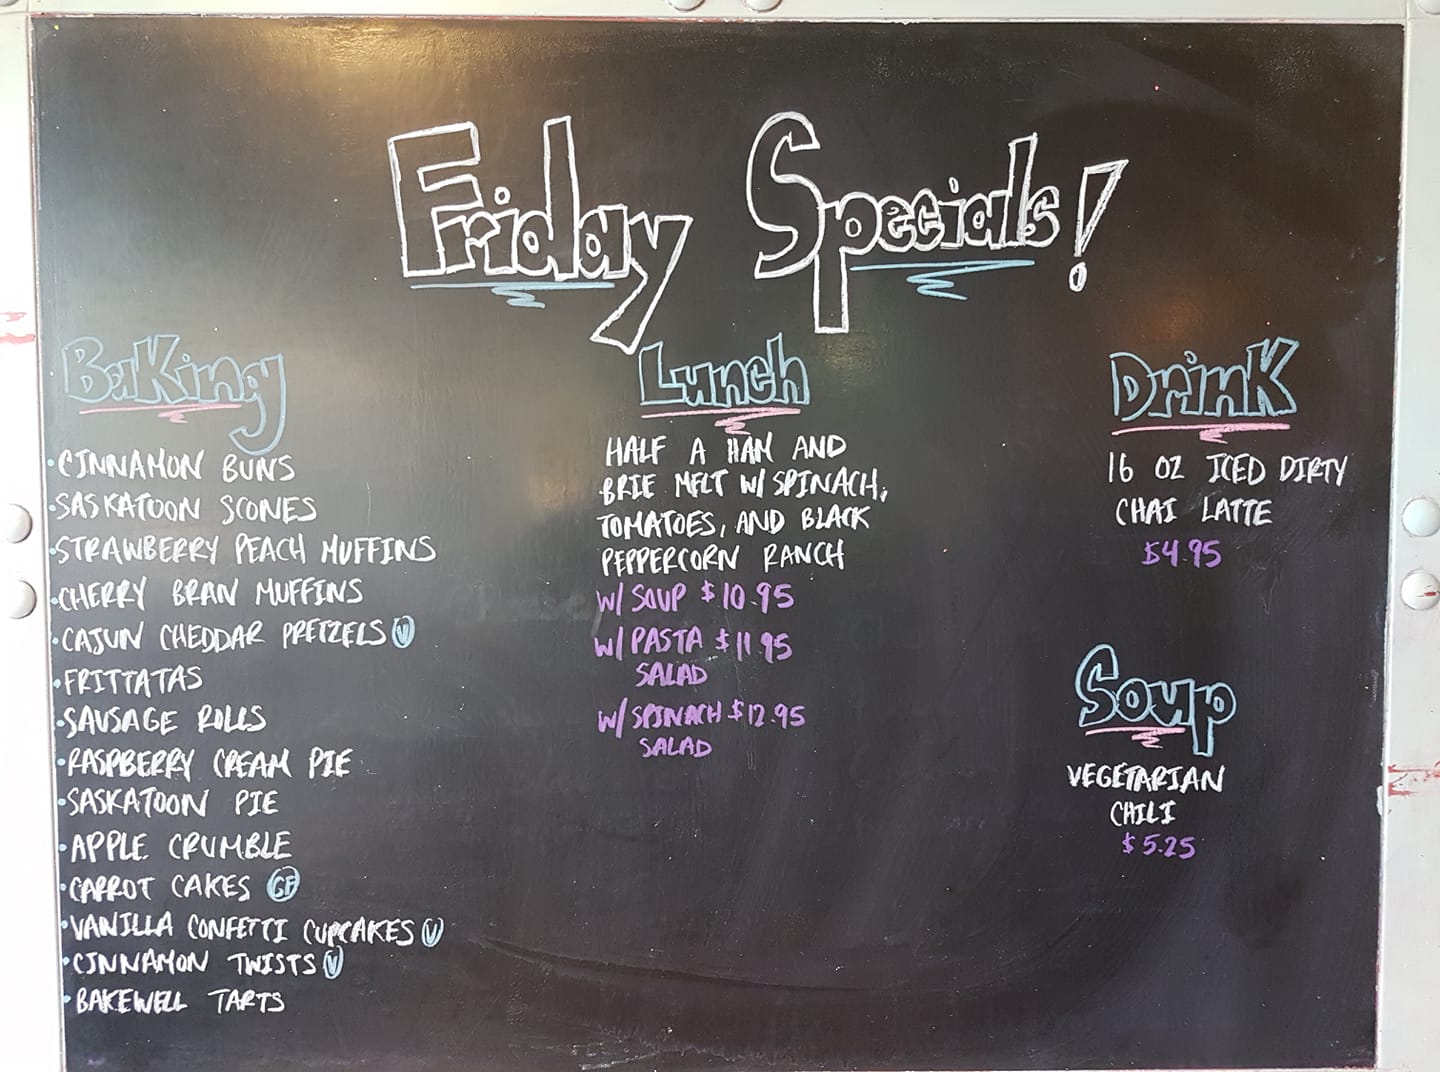 Friday Specials!
Baking
• CINNAMON BUNS
• SASKATOON SCONES
• STRAWBERRY PEACH MUFFINS
• CHERRY BRAN MUFFINS
• CAJUN CHEDDAR PRETZELS V
• FRITTATAS
• SAUSAGE ROLLS
• RASPBERRY CREAM PIE
• SASKATOON PIE
• APPLE CRUMBLE
• CARROT CAKES GF
• VANILLA CONFETTI CUPCAKES V
• CINNAMON TWISTS V
• BAKEWELL TARTS
Lunch
HALF A HAM AND
BRIE MELT W/ SPINACH,
TOMATOES, AND BLACK
PEPPERCORN RANCH
W/ SOUP $10.95
W/ PASTA $11.95
SALAD
W/ SPINACH $12.95
SALAD
Drink
16 OZ ICED DIRTY
CHAI LATTE
$4.95
Soup
VEGETARIAN
CHILI
$5.25